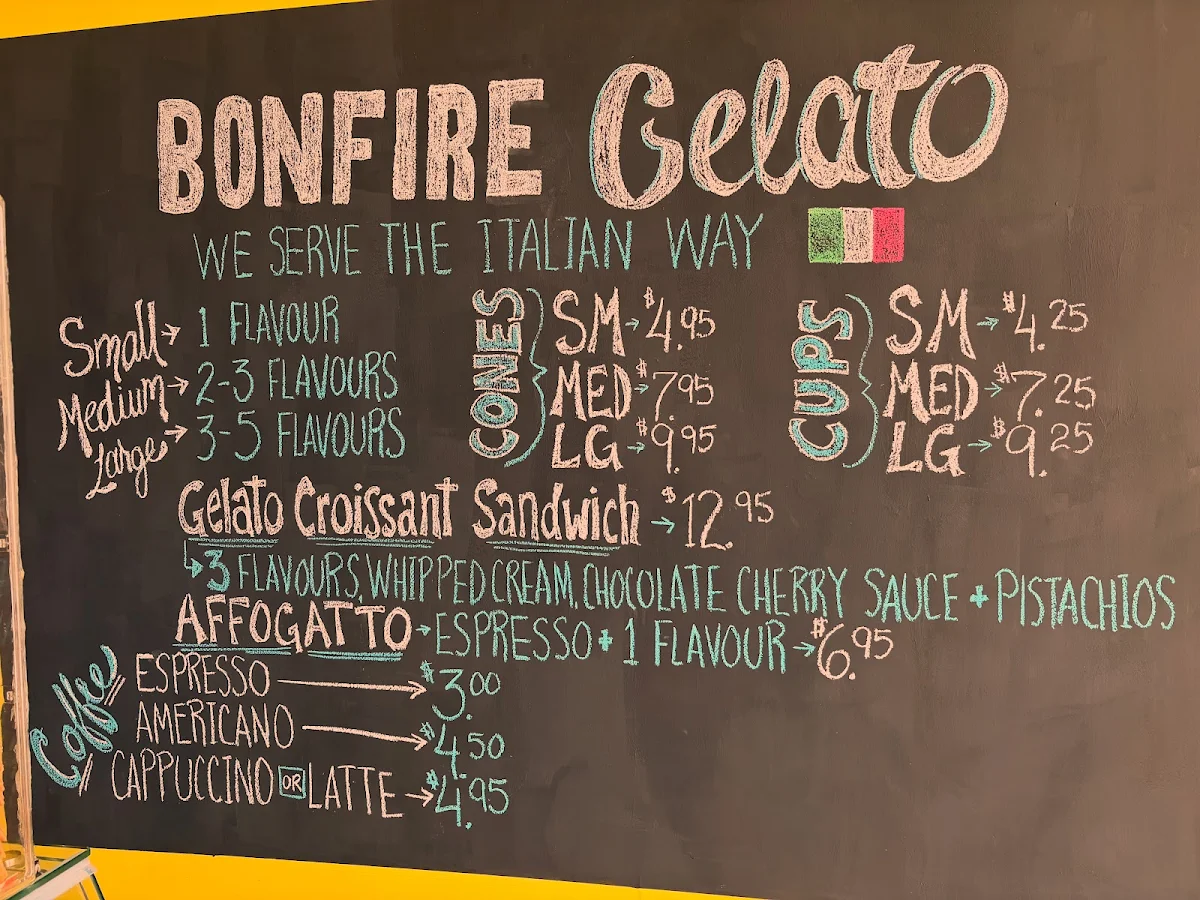 BONFIRE Gelato
WE SERVE THE ITALIAN WAY
Small → 1 FLAVOUR
Medium → 2-3 FLAVOURS
Large → 3-5 FLAVOURS
CONES
SM → $4.95
MED → $7.95
LG → $9.95
CUPS
SM → $4.25
MED → $7.25
LG → $9.25
Gelato Croissant Sandwich → $12.95
↳ 3 FLAVOURS, WHIPPED CREAM, CHOCOLATE CHERRY SAUCE + PISTACHIOS
AFFOGATTO → ESPRESSO + 1 FLAVOUR → $6.95
Coffee
ESPRESSO → $3.00
AMERICANO → $4.50
CAPPUCCINO OR LATTE → $4.95